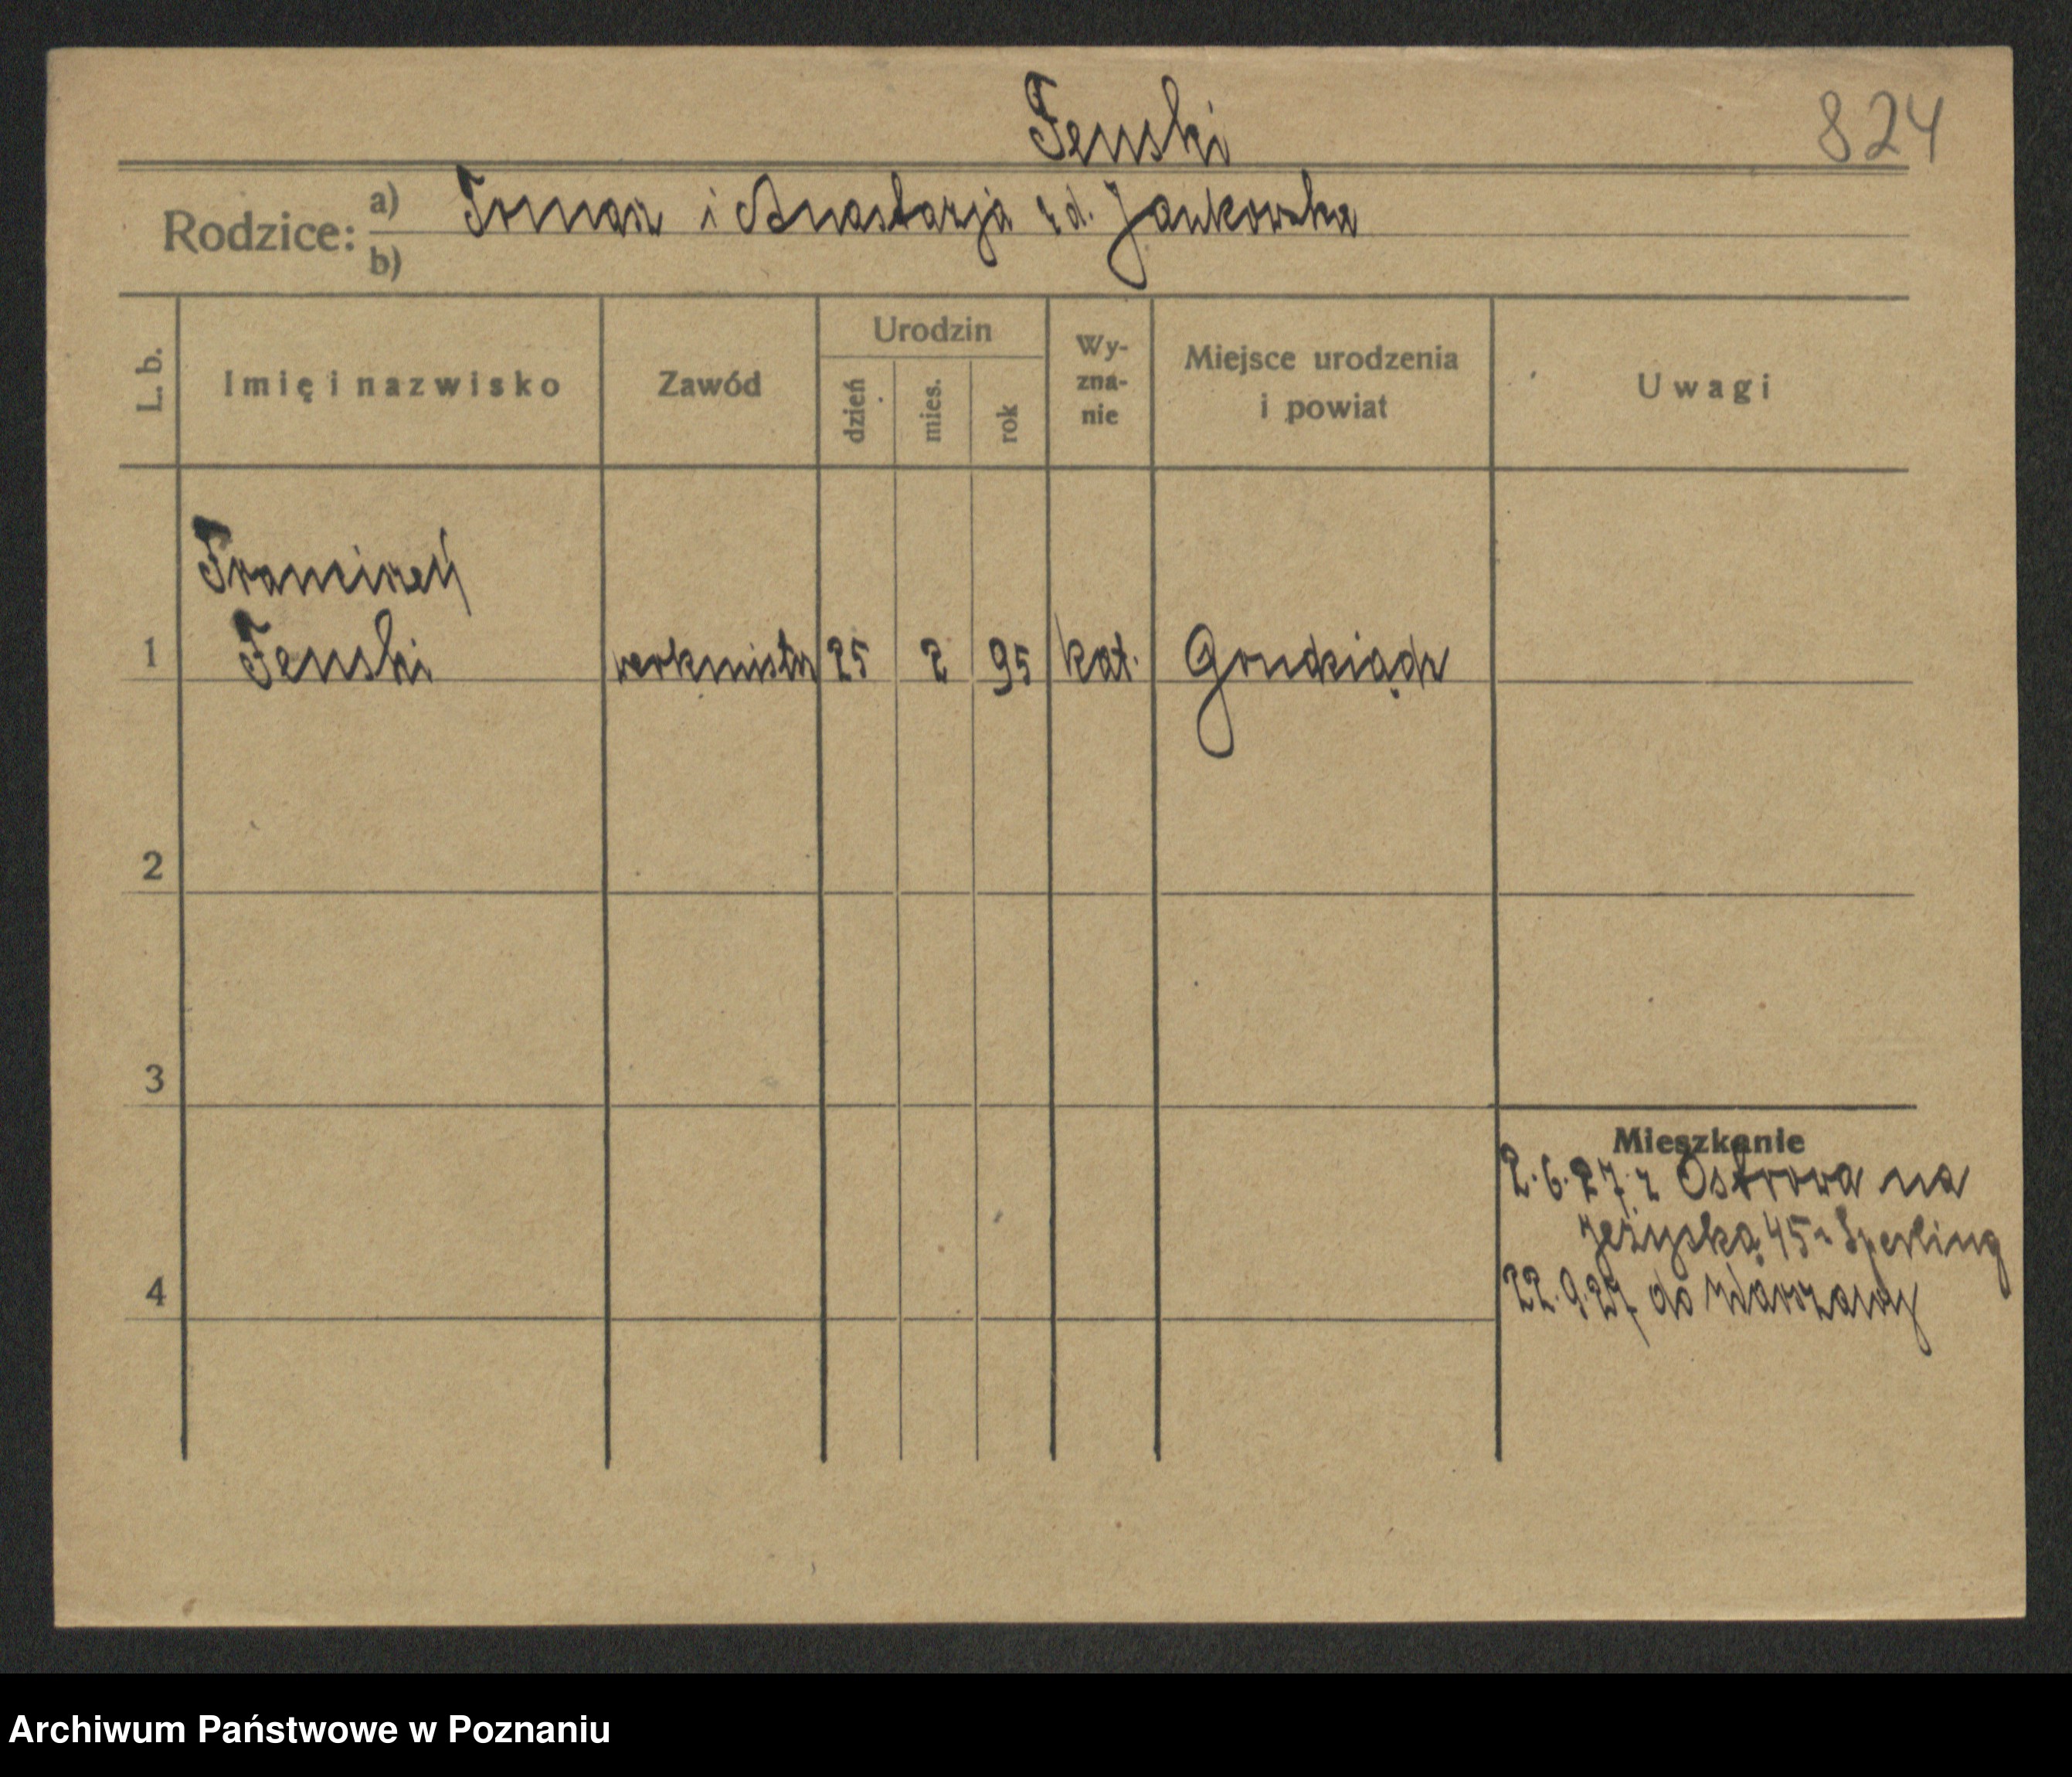 Fenski
824
Rodzice: a) Tomasz i Anastazja zd. Jankowska
b)
L. b.
Imię i nazwisko
Zawód
Urodzin
dzień
mies.
rok
Wy-
zna-
nie
Miejsce urodzenia
i powiat
Uwagi
Franciszek
1 Fenski werkmistrz 25 2 95 kat. Grudziądz
2
3
Mieszkanie
2.6.27 z Ostrowa na
Jeżyską 45 Sperling
4
22.9.27 do Warszawy
Archiwum Państwowe w Poznaniu